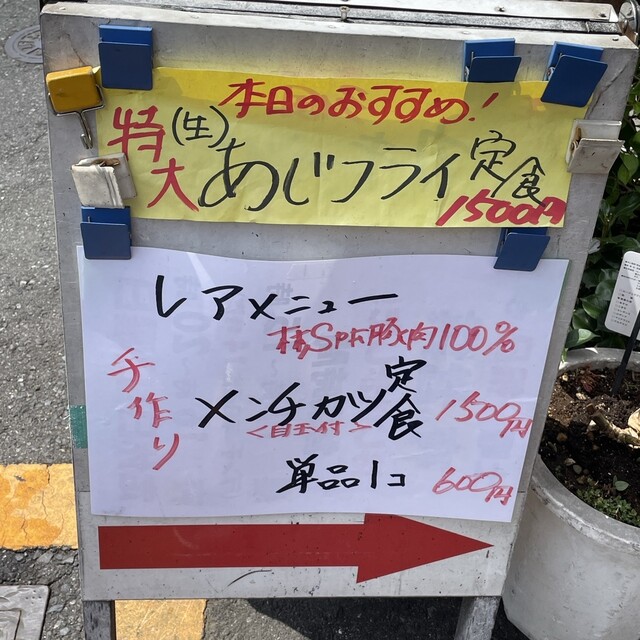 本日のおすすめ!
特大(生)あじフライ定食
1500円
レアメニュー
SPF豚肉100%
手作り
メンチカツ定食 1500円
<目玉付>
単品1コ 600円